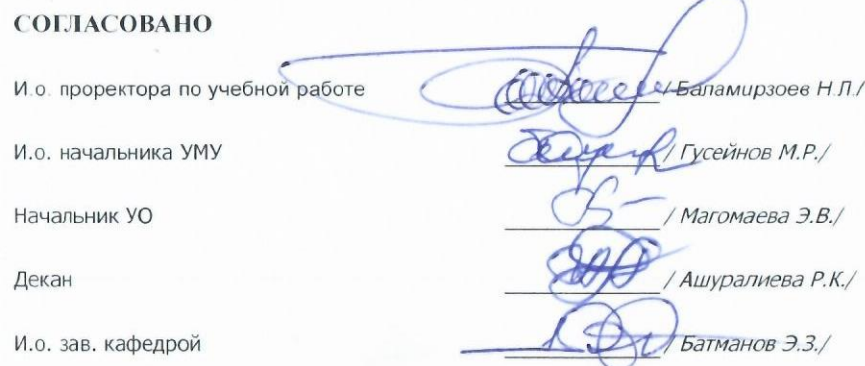 СОГЛАСОВАНО
И.о. проректора по учебной работе / Баламирзоев Н.Л./
И.о. начальника УМУ / Гусейнов М.Р./
Начальник УО / Магомаева Э.В./
Декан / Ашуралиева Р.К./
И.о. зав. кафедрой / Батманов Э.З./